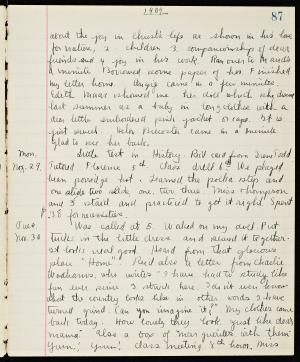 1909
87
about the joy in Christ's life as shown in his love
for nature, 2 - children 3. companionship of dear
friends and 4 joy in his work. Ran over to
a minute. Borrowed some paper of her. Finished
my letter home. came in a few minutes.
Edith returned me her doll which she
last summer as a baby in long clothes with a
dear little embroidered pink jacket & cape. It is
just sweet. Helen came in a minute
glad to see her back.
Mon.
Nov. 29.
Little Test in History. Rec'd card from
Tutored Florence 5th. Class drill 6th. We played
ten passed ball & learned the polka step and
one slide two slide, one, two three. Miss Thompson
and I stayed and practiced to get it right. Spent
.38 for necessities.
Tue.
Nov. 30
Was called at 5. Worked on my doll. Put
tucks in the little dress and sewed it together.
It looks real good. Heard from that glorious
place "Home". Had also a letter from Charlie
Wodharns, who writes "I have had to study like
fun ever since I struck here. I don't even know
what the country looks like in other words I have
turned grind. Can you imagine it." My clothes came
back today. How lovely they look just like dear
mama. Also a box of near goodies with them.
Yum! Yum! Class meeting 4th hour. Miss